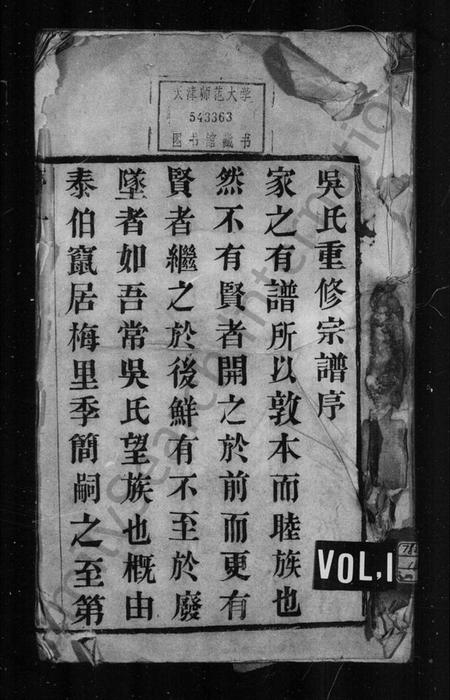 天津师范大学
543363
图书馆藏书
吳氏重修宗譜序
家之有譜所以敦本而睦族也
然不有賢者開之於前而更有
賢者繼之於後鮮有不至於廢
墜者如吾常吳氏望族也概由
泰伯竄居梅里季簡嗣之至第
VOL.1